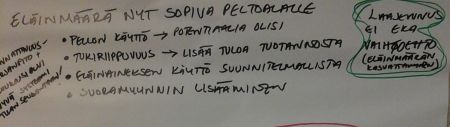 ELÄINMÄÄRÄ NYT SOPIVA PELTOALALLE
• PELLON KÄYTTÖ → POTENTIAALIA OLISI
• TUKIRIIPPUVUUS → LISÄÄ TULOA TUOTANNOSTA
• ELÄINAINEKSEN KÄYTTÖ SUUNNITELMALLISTA
• SUORAMYYNNIN LISÄÄMINEN
LAAJENNUS
EI EKA
VAIHTOEHTO
(ELÄINMÄÄRÄN
KASVATTAMINEN)